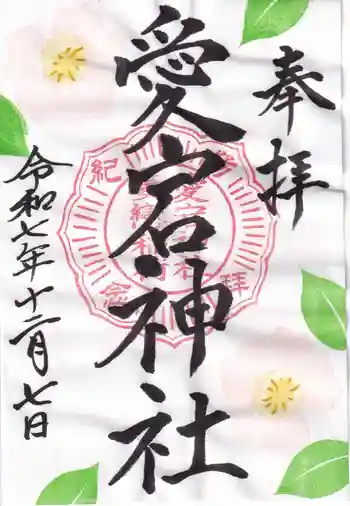 奉拝
愛宕神社
令和七年十二月七日